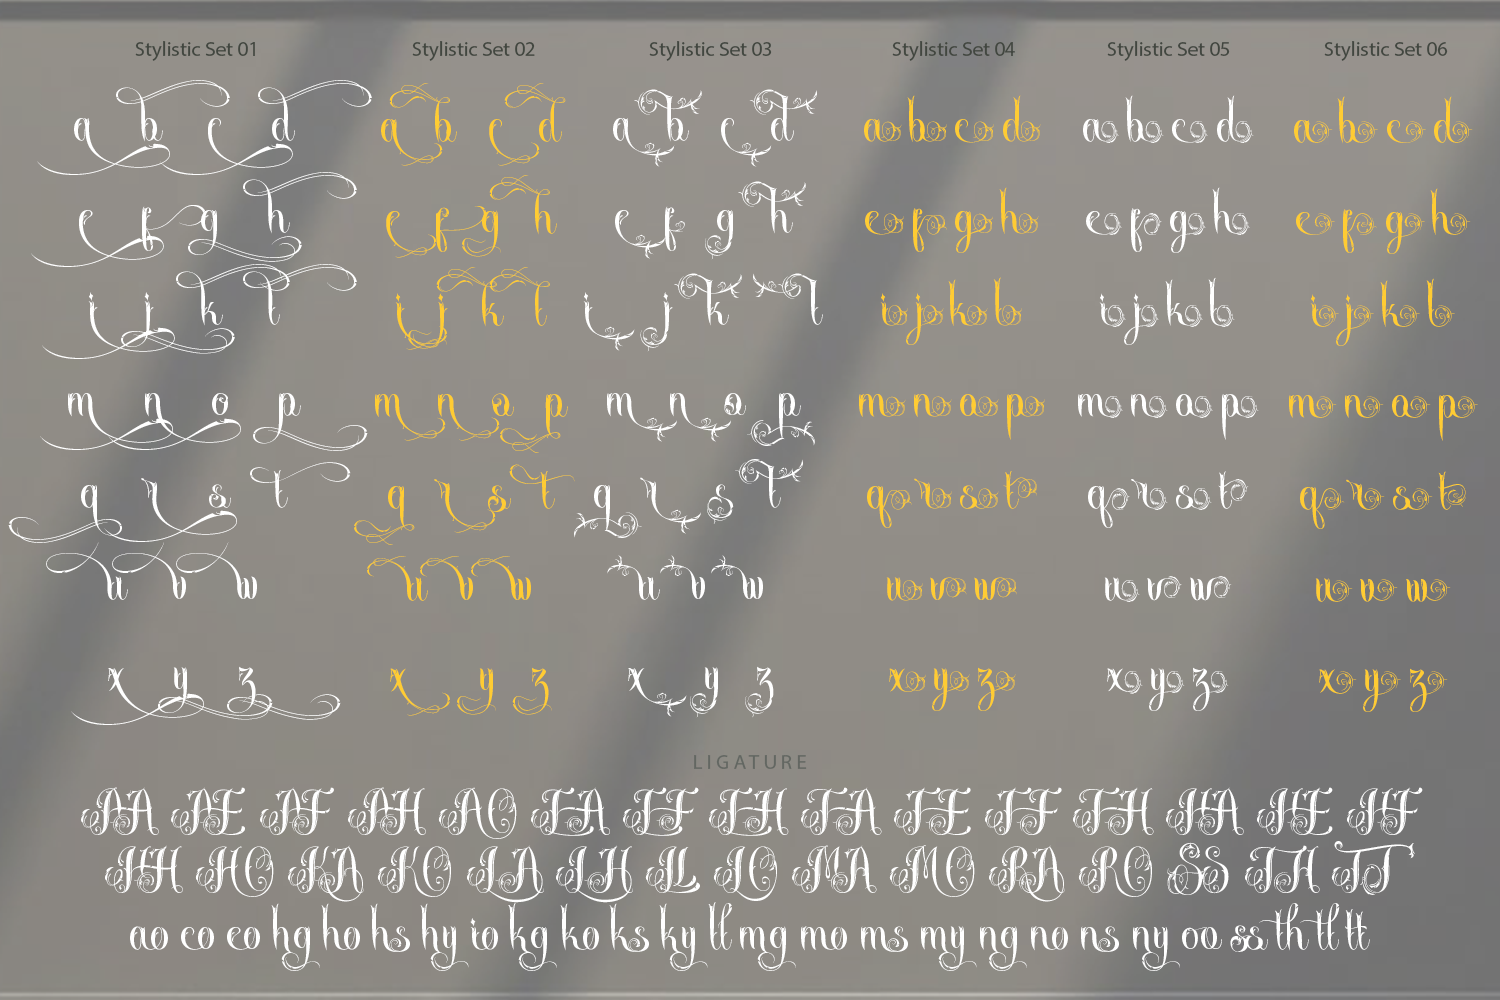 Stylistic Set 01 Stylistic Set 02 Stylistic Set 03 Stylistic Set 04 Stylistic Set 05 Stylistic Set 06
a b c d a b c d a b c d a b c d a b c d a b c d
e f g h e f g h e f g h e f g h e f g h e f g h
i j k l i j k l i j k l i j k l i j k l i j k l
m n o p m n o p m n o p m n o p m n o p m n o p
q r s t q r s t q r s t q r s t q r s t q r s t
u v w u v w u v w u v w u v w u v w
x y z x y z x y z x y z x y z x y z
LIGATURE
AA AE AF AH AO EA EF EH FA FE FF FH HA HE HF
HH HO KA KO LA LH LL LO MA MO RA RO SS TH TT
ao co eo hg ho hs hy io kg ko ks ky ll mg mo ms my ng no ns ny oo ss th tl tt